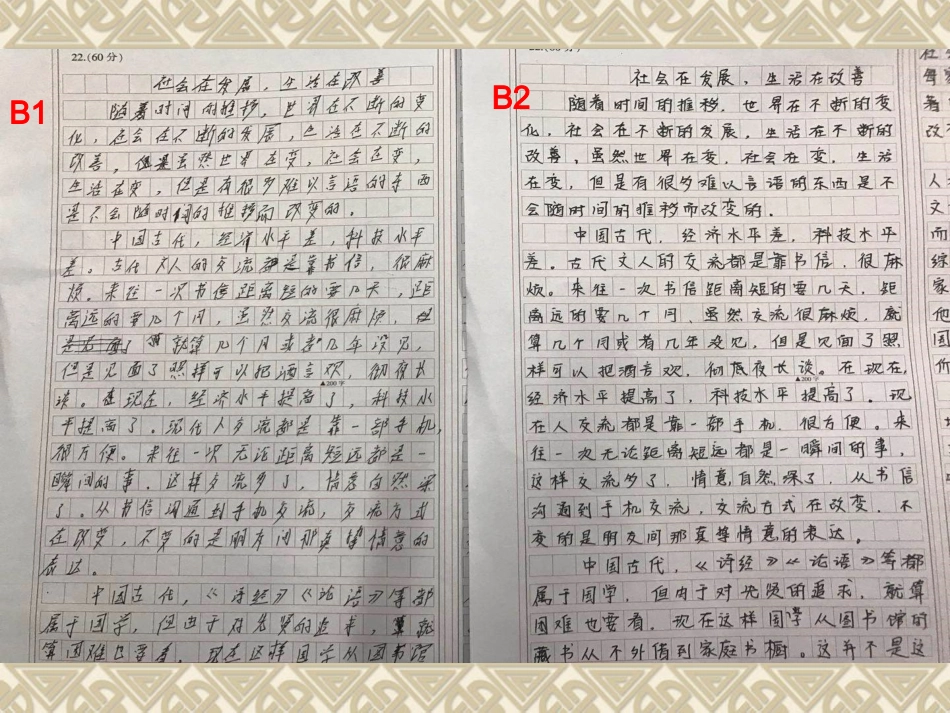 B1
22.(60分)
社会在发展，生活在改善
随着时间的推移，世界在不断的变
化，社会在不断的发展，生活在不断的
改善，但是虽然世界在变，社会在变，
生活在变，但是有很多难以言语的东西
是不会随时间的推移而改变的。
中国古代，经济水平差，科技水平
差。古代文人的交流都是靠书信，很麻
烦。来往一次书信距离短的要几天，距
离远的要几个月，虽然交流很麻烦，
就算几个月或者几年没见，
但是见面了照样可以把酒言欢，彻夜长
▲200字
谈。在现在，经济水平提高了，科技水
平提高了。现代人交流都是靠一部手机，
很方便。来往一次无论距离短远都是一
瞬间的事，这样交流多了，情意自然深
了。从书信沟通到手机交流，交流方式
在改变，不变的是朋友间那真挚情意的
表达。
中国古代，《诗经》《论语》等都
属于国学，但由于对先贤的追求，就
算困难也要看，现在这样国学从图书馆
B2
社会在发展，生活在改善
随着时间的推移，世界在不断的变
化，社会在不断的发展，生活在不断的
改善，虽然世界在变，社会在变，生活
在变，但是有很多难以言语的东西是不
会随时间的推移而改变的。
中国古代，经济水平差，科技水平
差。古代文人的交流都是靠书信，很麻
烦。来往一次书信距离短的要几天，距
离远的要几个月，虽然交流很麻烦，就
算几个月或者几年没见，但是见面了照
样可以把酒言欢，彻底夜长谈。在现在，
▲200字
经济水平提高了，科技水平提高了。现
在人交流都是靠一部手机，很方便。来
往一次无论距离短远都是一瞬间的事，
这样交流多了，情意自然深了，从书信
沟通到手机交流，交流方式在改变，不
变的是朋友间那真挚情意的表达。
中国古代，《诗经》《论语》等都
属于国学，但由于对先贤的追求，就算
困难也要看，现在这样国学从图书馆的
藏书从不外借到家庭书橱。这并不是这